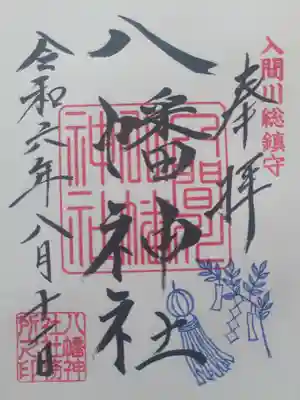 入間川総鎮守
奉拝
八幡神社
令和六年八月十一日
八幡神
社社務
所之印